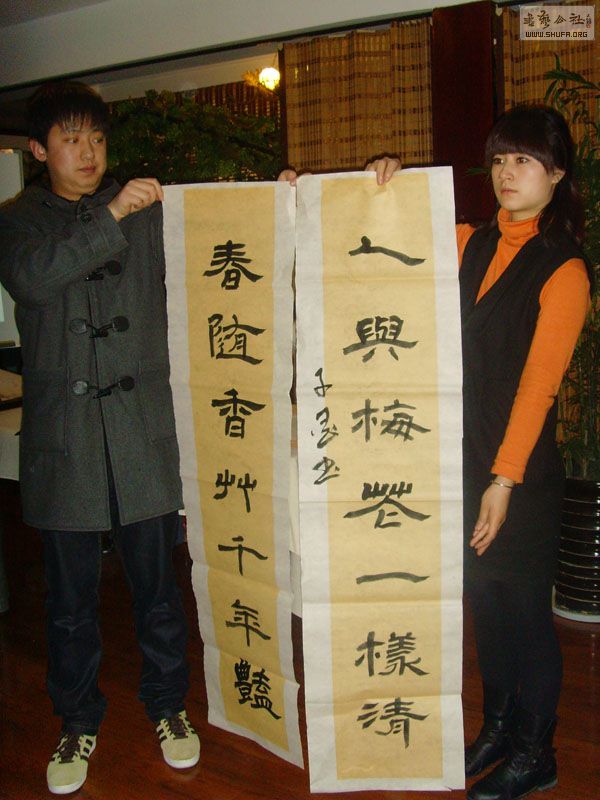 春随香艸千年豔
人與梅花一樣清
子墨书
書藝公社
WWW.SHUFA.ORG